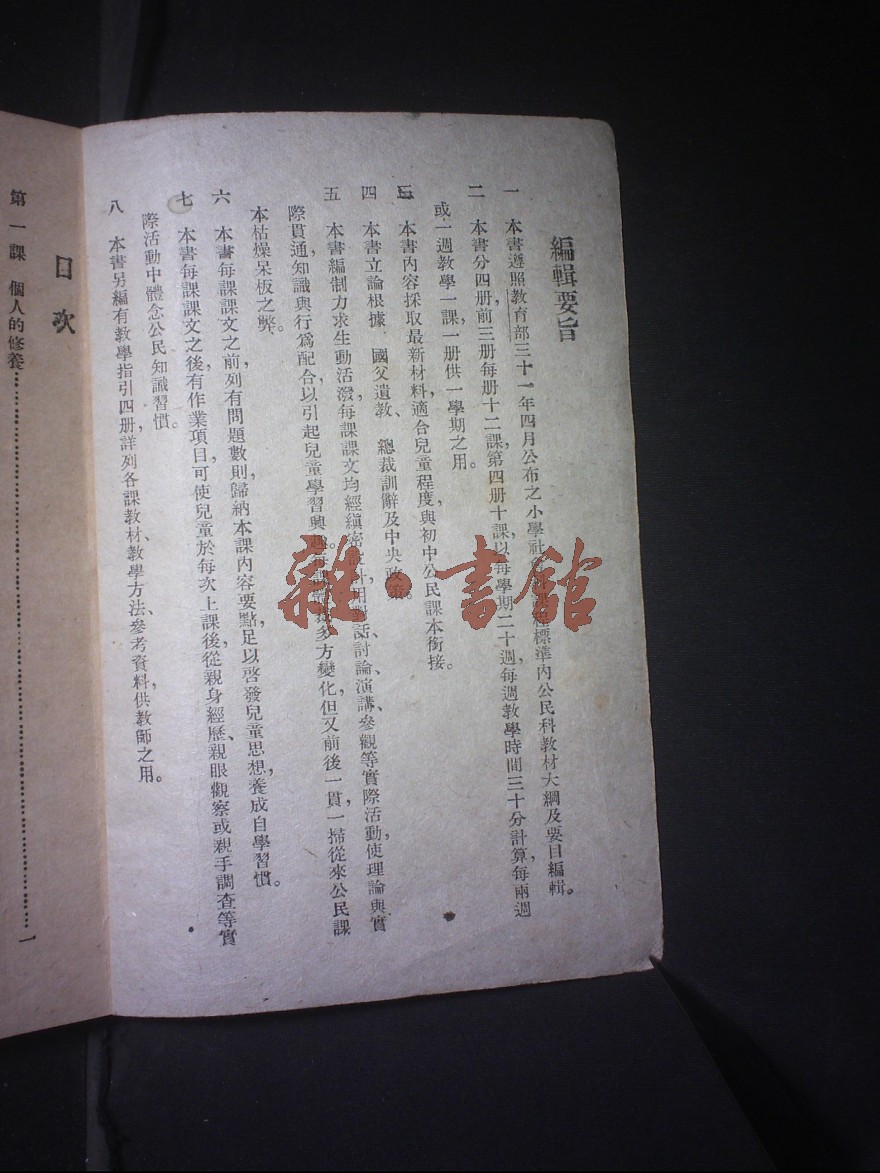 編輯要旨
一 本書遵照教育部三十一年四月公布之小學社 標準內公民科教材大綱及要目編輯。
二 本書分四册，前三册每册十二課，第四册十課，以每學期二十週每週教學時間三十分計算，每兩週
或一週教學一課一册供一學期之用。
三 本書內容採取最新材料，適合兒童程度，與初中公民課本銜接。
四 本書立論根據 國父遺教、 總裁訓辭及中央政策。
五 本書編制力求生動活潑，每課課文均經縝密設計，用對話、討論、演講、參觀等實際活動，使理論與實
際貫通，知識與行爲配合，以引起兒童學習興趣。 多方變化，但又前後一貫，一掃從來公民課
本枯燥呆板之弊。
六 本書每課課文之前列有問題數則歸納本課內容要點足以啓發兒童思想，養成自學習慣。
七 本書每課課文之後，有作業項目，可使兒童於每次上課後從親身經歷、親眼觀察或親手調查等實
際活動中體念公民知識習慣。
八 本書另編有教學指引四册，詳列各課教材、教學方法、參考資料，供教師之用。
目次
第一課 個人的修養……………………………一
雜·書館